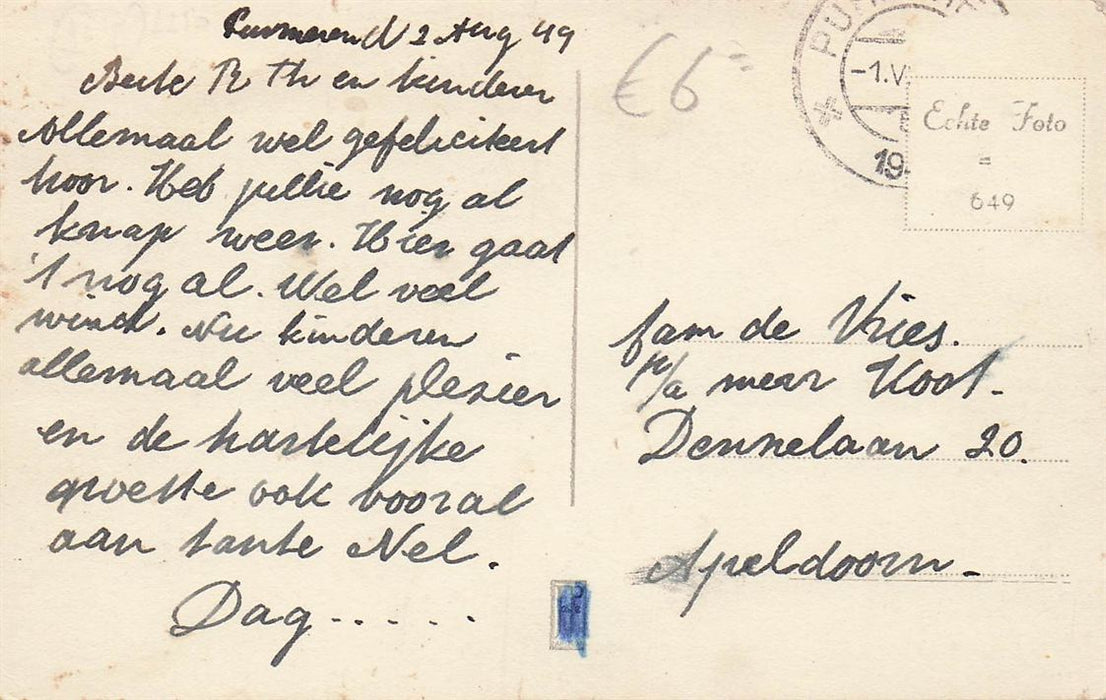 Purmerend 2 Aug 49
Beste R Th en kinderen
Allemaal wel gefeliciteerd
hoor. Heb jullie nog al
knap weer. Hier gaat
't nog al. Wel veel
wind. Nu kinderen
allemaal veel plezier
en de hartelijke
groette ook vooral
aan tante Nel.
Dag.....
€6=
PU
-1.V
19
Echte Foto
=
649
fam de Vries.
p/a mevr Koot.
Dennelaan 20.
Apeldoorn.